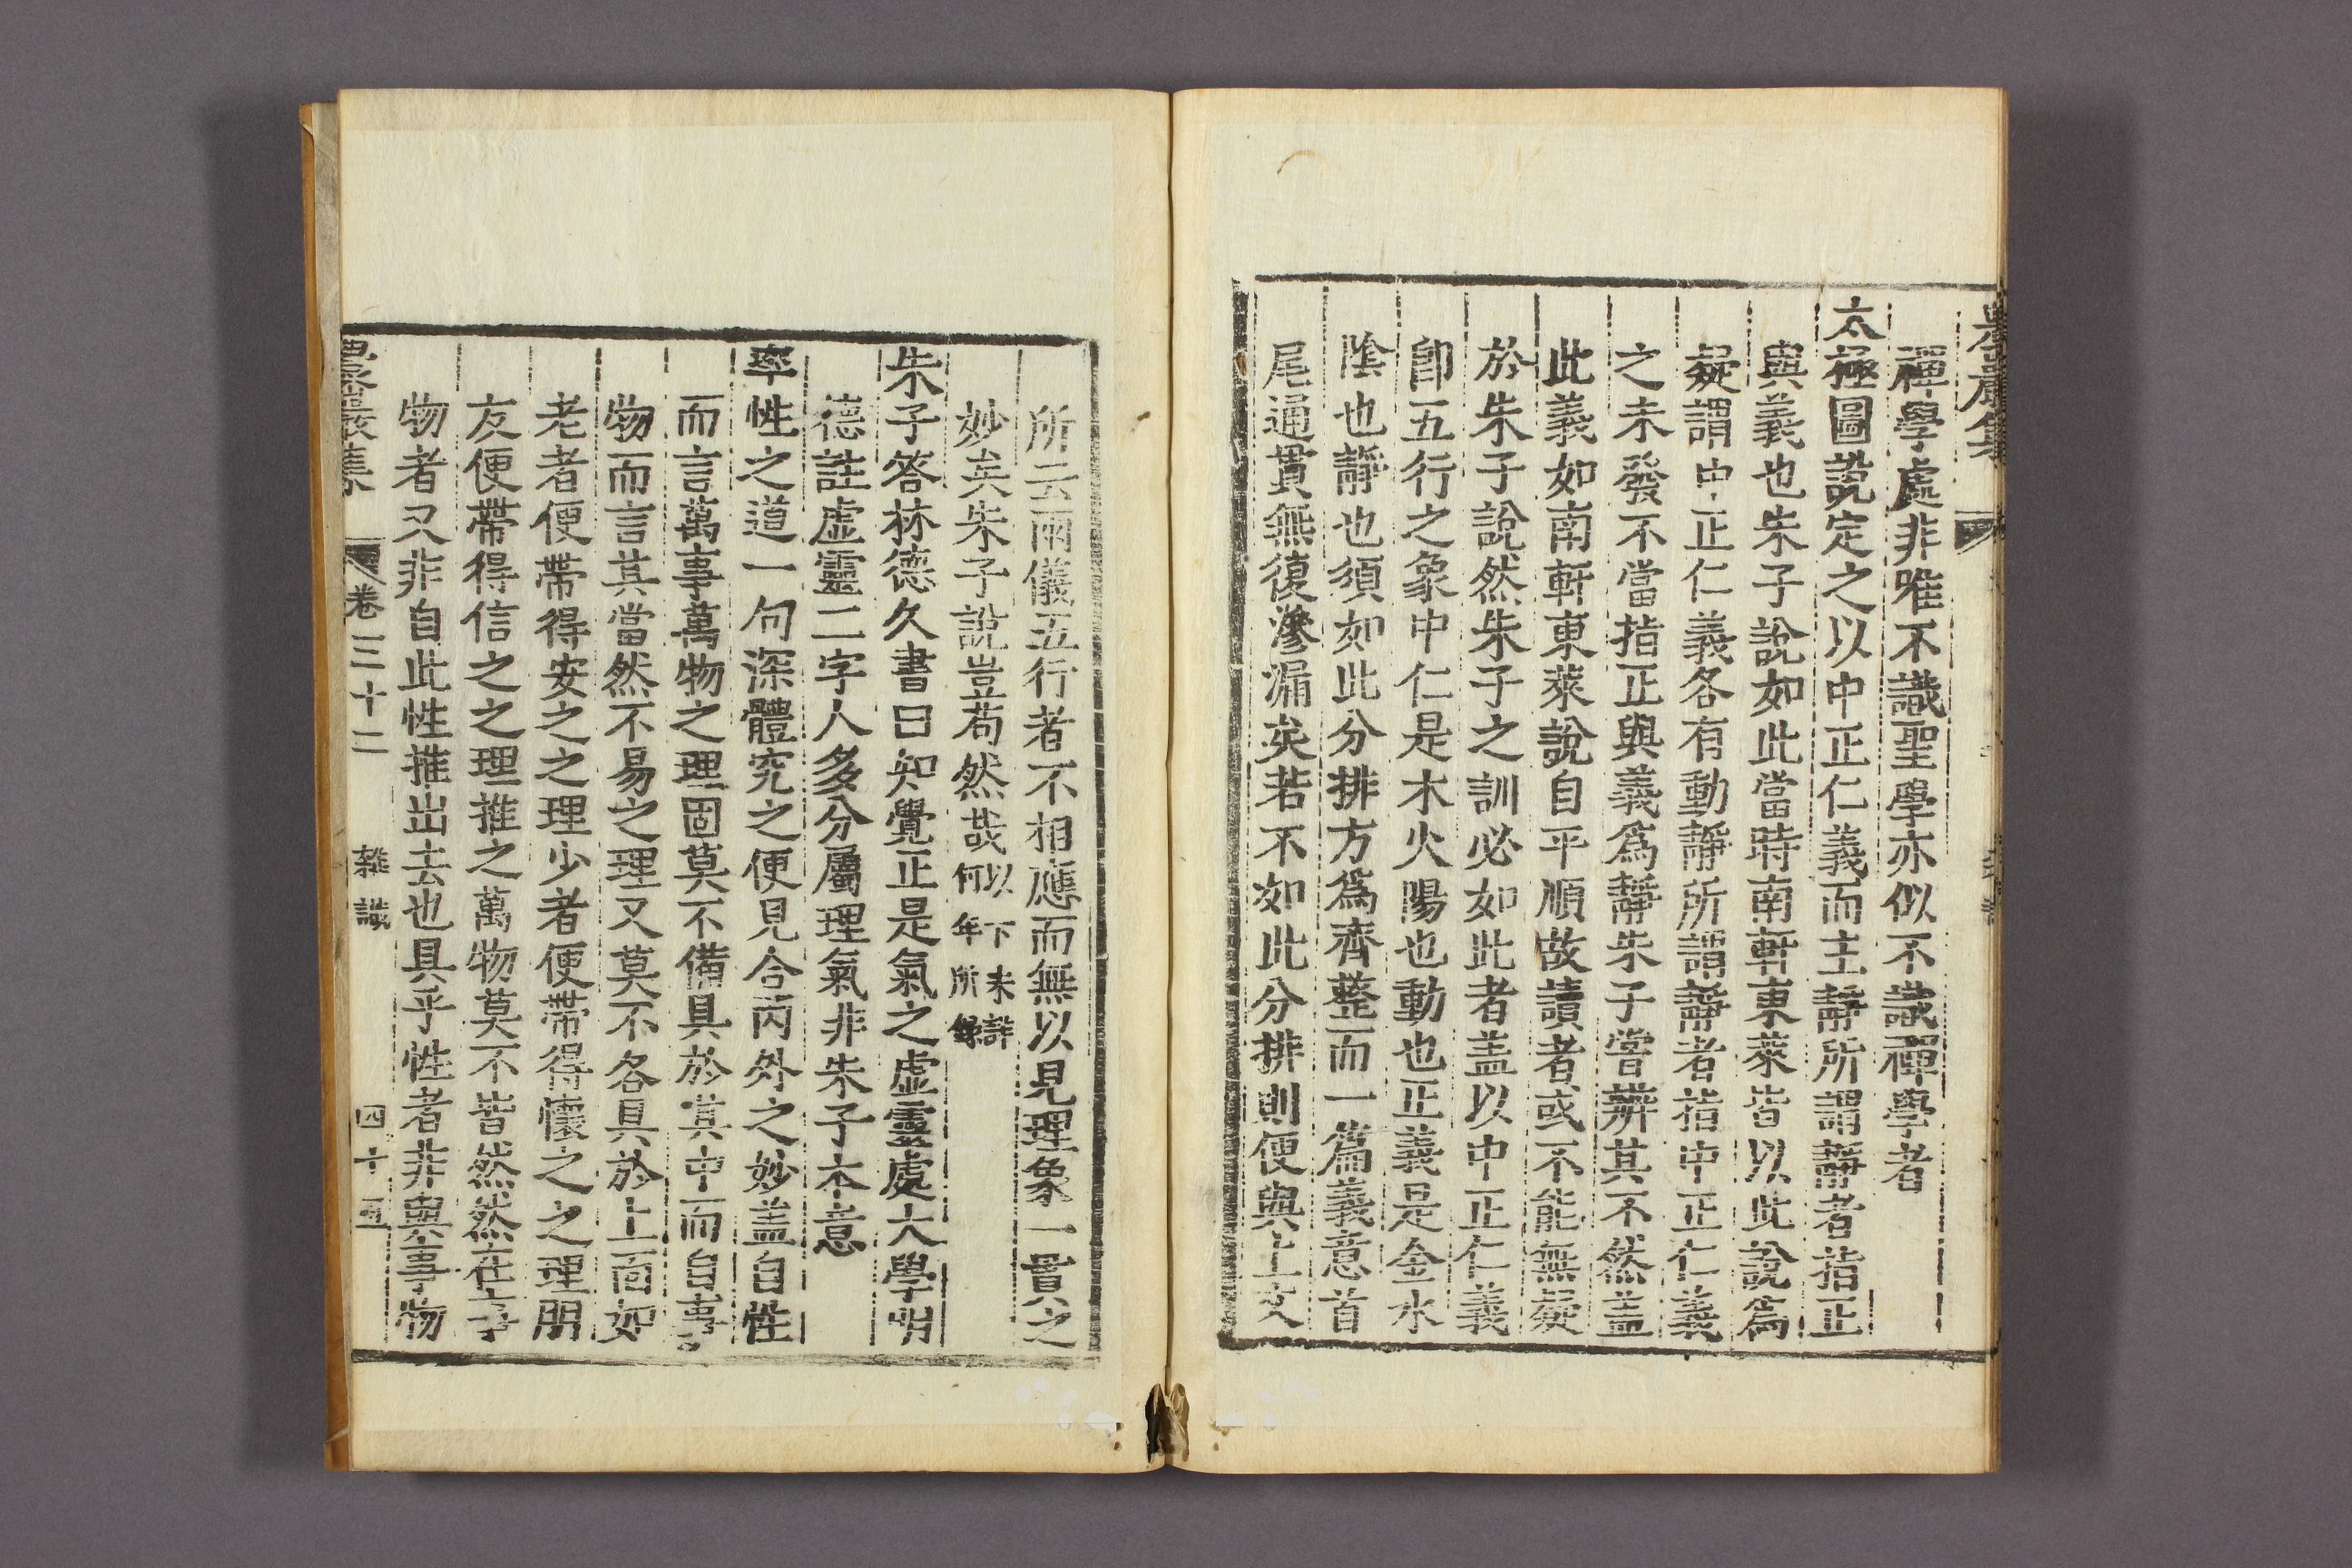 農巖集
禪學處非唯不識聖學亦似不識禪學者
太極圖說定之以中正仁義而主靜所謂靜者指正
與義也朱子說如此當時南軒東萊皆以此說爲
疑謂中正仁義各有動靜所謂靜者指中正仁義
之未發不當指正與義爲靜朱子嘗辨其不然盖
此義如南軒東萊說自平順故讀者或不能無疑
於朱子說然朱子之訓必如此者盖以中正仁義
卽五行之象中仁是木火陽也動也正義是金水
陰也靜也須如此分排方爲齊整而一篇義意首
尾通貫無復滲漏矣若不如此分排則便與上文
所云兩儀五行者不相應而無以見理象一貫之
妙矣朱子說豈苟然哉以下未詳何年所錄
朱子答林德久書曰知覺正是氣之虛靈處大學明
德註虛靈二字人多分屬理氣非朱子本意
率性之道一句深體究之便見合內外之妙盖自性
而言萬事萬物之理固莫不備具於其中而自事
物而言其當然不易之理又莫不各具於上面如
老者便帶得安之之理少者便帶得懷之之理朋
友便帶得信之之理推之萬物莫不皆然然在事
物者又非自此性推出去也具乎性者非與事物
農巖集 卷三十二 雜識 四十五